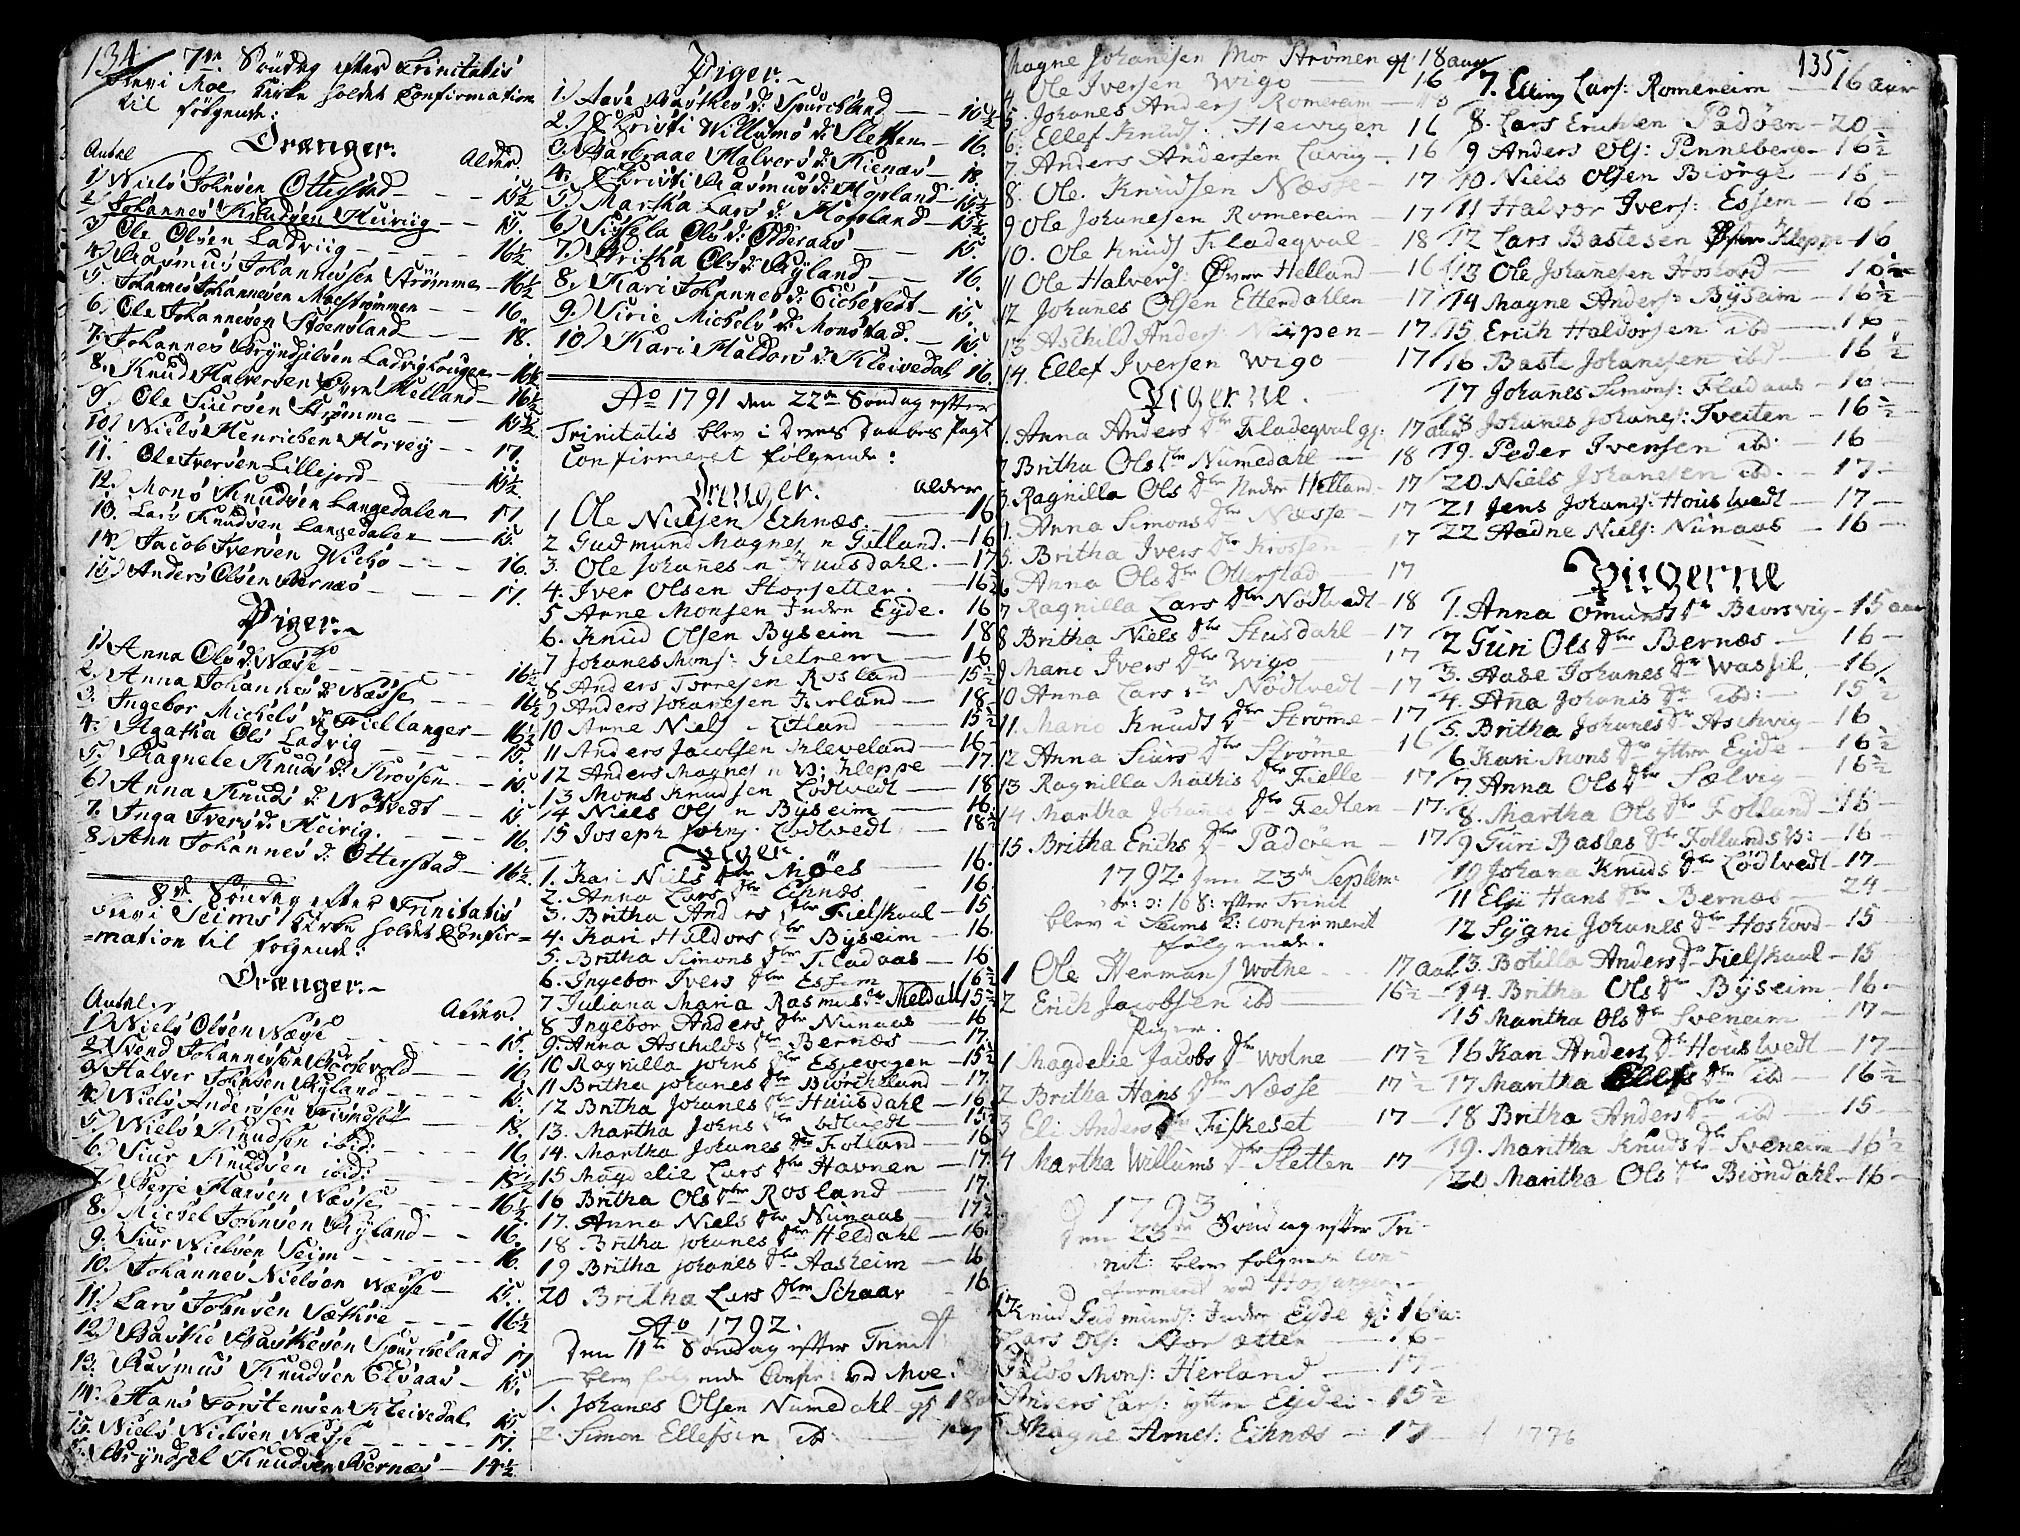 134
7de Søndag efter Trinitatis
blev i Moe Kirke holdet Confirmation
til følgende:
Drenger.
Antal Alder.
1) Niels Johnsen Otterstad — 15½
2 Johannes Knudsen Heiviig — 15.
3) Ole Olsen Ladviig — 16½
4) Rasmus Johannessen Strømme — 16½
5. Johannes Johannesen Moestrømmen — 16.
6) Ole Johannesen — 18.
7. Johannes Bryndsilsen Ladvig
8. Knud Halversen Øvre Helland — 16½
9. Ole Siursen Strømme — 15½
10) Niels Henrichsen — 17.
11. Ole Iversen Lillejord — 15½
12. Mons Knudsen Langedalen — 17
13. Lars Knudsen Langedalen — 15.
14) Jacob Iversen — 16.
15) Anders Olsen Bernæs — 17.
Piger.
1) Anna Ols d: Næsse — 16½
2. Anna Johannes d: Næsse — 16½
3. Ingebor Michels d: Fiellanger — 16½
4. Agatha Ols Ladvig — 15.
5) Ragnele Knuds d: Krossen — 15.
6) Anna Knuds d: Nøtvedt — 15
7. Inga Ivers d: Heivig. — 16.
8. Ann Johannes d: Otterstad — 16½
8de Søndag efter Trinitatis
blev i Seims Kirke holdet Confir=
=mation til følgende:
Drenger.
Antal. Alder.
1) Niels Olsen Næsse — 15.
2. Svend Johannessen — 16
3) Halver Johnsen Ryland — 15.
4. Niels Andersen — 18.
5) Niels Knudsen ibid: — 16
6. Siur Knudsen ibid: — 18½
7) Børje Larsen Næsse — 16½
8. Michel Johnsen Ryland — 16.
9. Siur Nielsen Seim — 16.
10. Johannes Nielsen Næsse — 15.
11) Lars Johnsen Sæthre — 16½
12) Bastie Bastiesen — 17
13. Rasmus Knudsen Elsaas — 15.
14. Hans Torstensen Kleivedal 15
15. Niels Nielsen Næsse — 17.
Bryndsel Knudsen Bernæs — 14½
Piger.
1) Aase d: — 16½
2.) Christi Willums d: Sletten — 16.
3. Barbraae Halvers d: — 18.
4. Christi Rasmus d: Hopland — 15½
5) Martha Lars d: Hopland — 15½
6) Sissela Ols d: Odderaas — 15.
7.) Britha Ols d: Ryland — 16.
8. Kari Johannes d: — 15.
9) Sirie Michels d: Monstad. — 15.
10) Kari Haldors d: Kleivedal 16.
Ao 1791 den 22de Søndag efter
Trinitatis blev i deres Daabes Pagt
Confirmeret følgende:
Drenger. Alder
1 Ole Nielsen Echnæs. — 16
2 Gudmund Magnes n Gilland. — 16
3. Ole Johannes n Huusdahl. — 17
4. Iver Olsen Storsetter. — 16½
5 Arne Monsen Indre Eyde. 16
6. Knud Olsen Byseim — 18
7 Johanes Mons: — 16
8 Anders Torresen Rosland — 15½
9 Anders Johanesen — 18
10 Arne Niels — 15½
11 Anders Jacobsen Kleveland — 16
12 Anders Magnes n Kleppe — 17
13 Mons Knudsen Lødtvedt — 18
14 Niels Ols n Byseim — 16.
15 Joseph Johns: Lødtvedt — 18½
Piger.
1. Kari Niels dtr Møes — 16.
2. Anna Lars dtr Echnæs — 16.
3. Britha Anders dtr Fielskaal — 15
4. Kari Haldors dtr Byseim — 16.
5. Britha Simons dtr Fladaas — 16
6. Ingebor Ivers dtr Essem — 16½
7 Juliana Maria Rasmus dtr Heldahl 15½
8 Ingebor Anders dtr Nunaas — 16
9. Anna Aschilds dtr Bernæs — 17.
10 Ragnilla Johns dtr — 15½
11 Britha Johanes dtr — 17.
12 Britha Johanes dtr Huusdahl — 16
13. Martha Johns dtr — 15
14. Martha Johanes dtr Fotland — 16
15 Magdelie Lars dtr Havnen — 17.
16 Britha Ols dtr Rosland — 17
17. Anna Niels dtr Nunaas — 17½
18. Britha Johanes dtr Heldahl — 16.
19 Britha Johanes dtr Aasheim — 16
20 Britha Lars dtr Schaar — 16
Ao 1792.
Den 11te Søndag efter Trinit
blev følgende Confir: ved Moe:
1. Johanes Olsen Numedahl — 18
2. Simon Ellefsen ib — 17
Magne Johanesen Mor Strømen gl: 18 aar
4 Ole Iversen Wigo — 16
5. Johanes Anders: Romereim
6. Ellef Knuds: Heivigen 16
7. Anders Andersen Lavig — 16
8. Ole Knudsen Næsse — 17
9 Ole Johanesen Romereim — 17
10. Ole Knuds Fladeqval — 18
11 Ole Halvers: Øvre Helland — 16
12 Johanes Olsen Etterdahlen — 17
13 Aschild Anders: — 17
14. Ellef Iversen Wigo — 17
Pigerne.
1. Anna Anders dtr Fladeqval gl: 17 aar
2 Britha Ols dtr Numedahl — 18
3. Ragnilla Ols dtr Nedre Helland 17
4. Anna Simons dtr Næsse — 17
5. Britha Ivers dtr Krossen 17
6 Anna Ols dtr Otterstad — 17
7 Ragnilla Lars dtr Nødtvedt — 18
8 Britha Niels dtr Huusdahl — 17
9 Mario Ivers dtr Wigo — 17
10 Anna Lars dtr Nødtvedt — 17
11. Mario Knuds dtr Strøme — 17
12 Anna Siurs dtr Strøme 16
13 Ragnilla Mathis dtr Fielle — 17
14 Martha Johanes dtr — 17
15 Britha Erichs dtr Padøen 17
1792. den 23de Septem:
br: ɔ: 16 S: efter Trinit
blev i Seims K: confirmerit
følgende.
1 Ole Hermans Wolne 17 aar
2 Erich Jacobsen ib — 16½
Piger.
1 Magdelie Jacobs dtr Wolne — 17½
2 Britha Hans dtr Næsse — 17½
3 Eli Anders dtr Fiskeset 17
4 Martha Willums dtr Sletten 17
1793
den 23de Søndag efter Tri-
nit: blev følgende con-
firmeret ved Hosanger.
1 Knud Gudmunds: Indre Eyde gl: 16 a:
Lars Ols: Storsetter 16
Jacob Mons: Herland — 17
Anders Lars: ytter Eyde — 15½
Magne Arnes: Echnæs — 17 1776
135
7. Elling Lars: Romereim — 16 aar
8. Lars Erichsen Padøen — 20
9 Anders Ols: Penneberg — 16½
10. Niels Olsen Biørge — 16
11 Halvor Ivers: Essem — 16
12 Lars Bastesen Kleppe — 16
13 Ole Johanesen Hoskord — 16½
14 Magne Anders: Byseim — 16½
15 Erich Haldorsen ibd — 16
16 Baste Johanesen ibd — 16½
17 Johanes Simons: Fladaas — 16
18 Johanes Johanes: Tveiten — 16½
19. Peder Iversen ib: 16
20 Niels Johanesen ib. — 17
21 Jens Johanes: Houstvedt — 17
22 Aadne Niels: Nunaas — 16
Pigerne
1. Anna Omunds dtr Biørsvig — 15 aar
2 Guri Ols dtr Bernæs — 16
3. Aase Johanes dtr Wassel — 16
4. Ana Johanis dtr ib: — 15½
5. Britha Johanes dtr Aschvig — 16
6 Kari Mons dtr ytter Eyde — 16½
7. Anna Ols dtr Sælvig — 16½
8. Martha Ols dtr Fotland — 16
9 Guri Bastes dtr — 16
10 Johana Knuds dtr Lødtvedt — 17
11 Elji Hans dtr Bernæs — 24
12 Sygni Johanes dtr Hoskord — 15
13. Botilla Anders dtr Fielskaal — 15
14. Britha Ols dtr Byseim — 16
15 Maritha Ols dtr Sveneim — 17
16 Kari Anders dtr Houstvedt — 17
17 Maritha Ellefs dtr ib — 16½
18 Britha Anders dtr ib — 15
19. Maritha Knuds dtr Sveneim — 16½
20 Maritha Ols dtr Biøndahl — 16